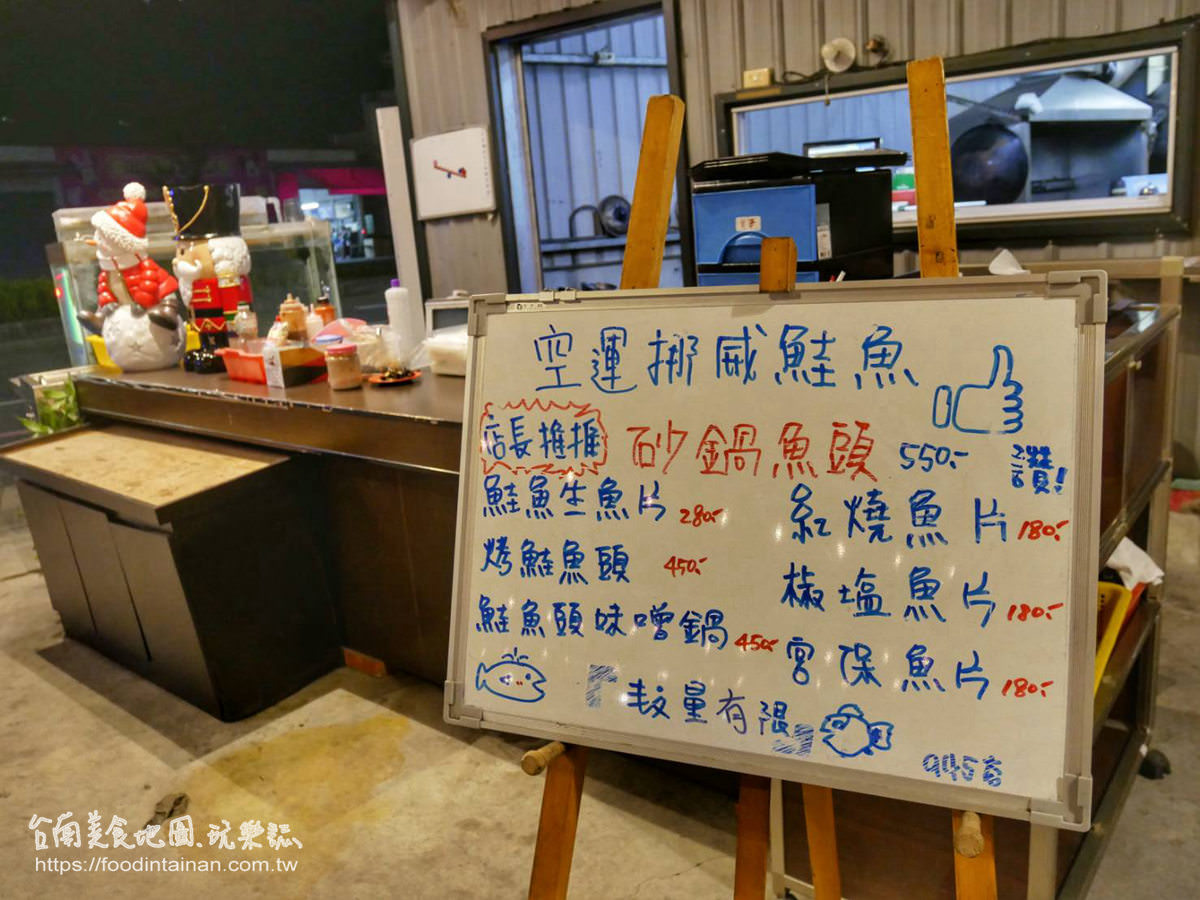 空運挪威鮭魚
店長推推 砂鍋魚頭 550.-
讚!
鮭魚生魚片 280.-
紅燒魚片 180.-
烤鮭魚頭 450.-
椒塩魚片 180.-
鮭魚頭味噌鍋 450.-
宮保魚片 180.-
「数量有限」
台南美食地圖、玩樂誌
https://foodintainan.com.tw